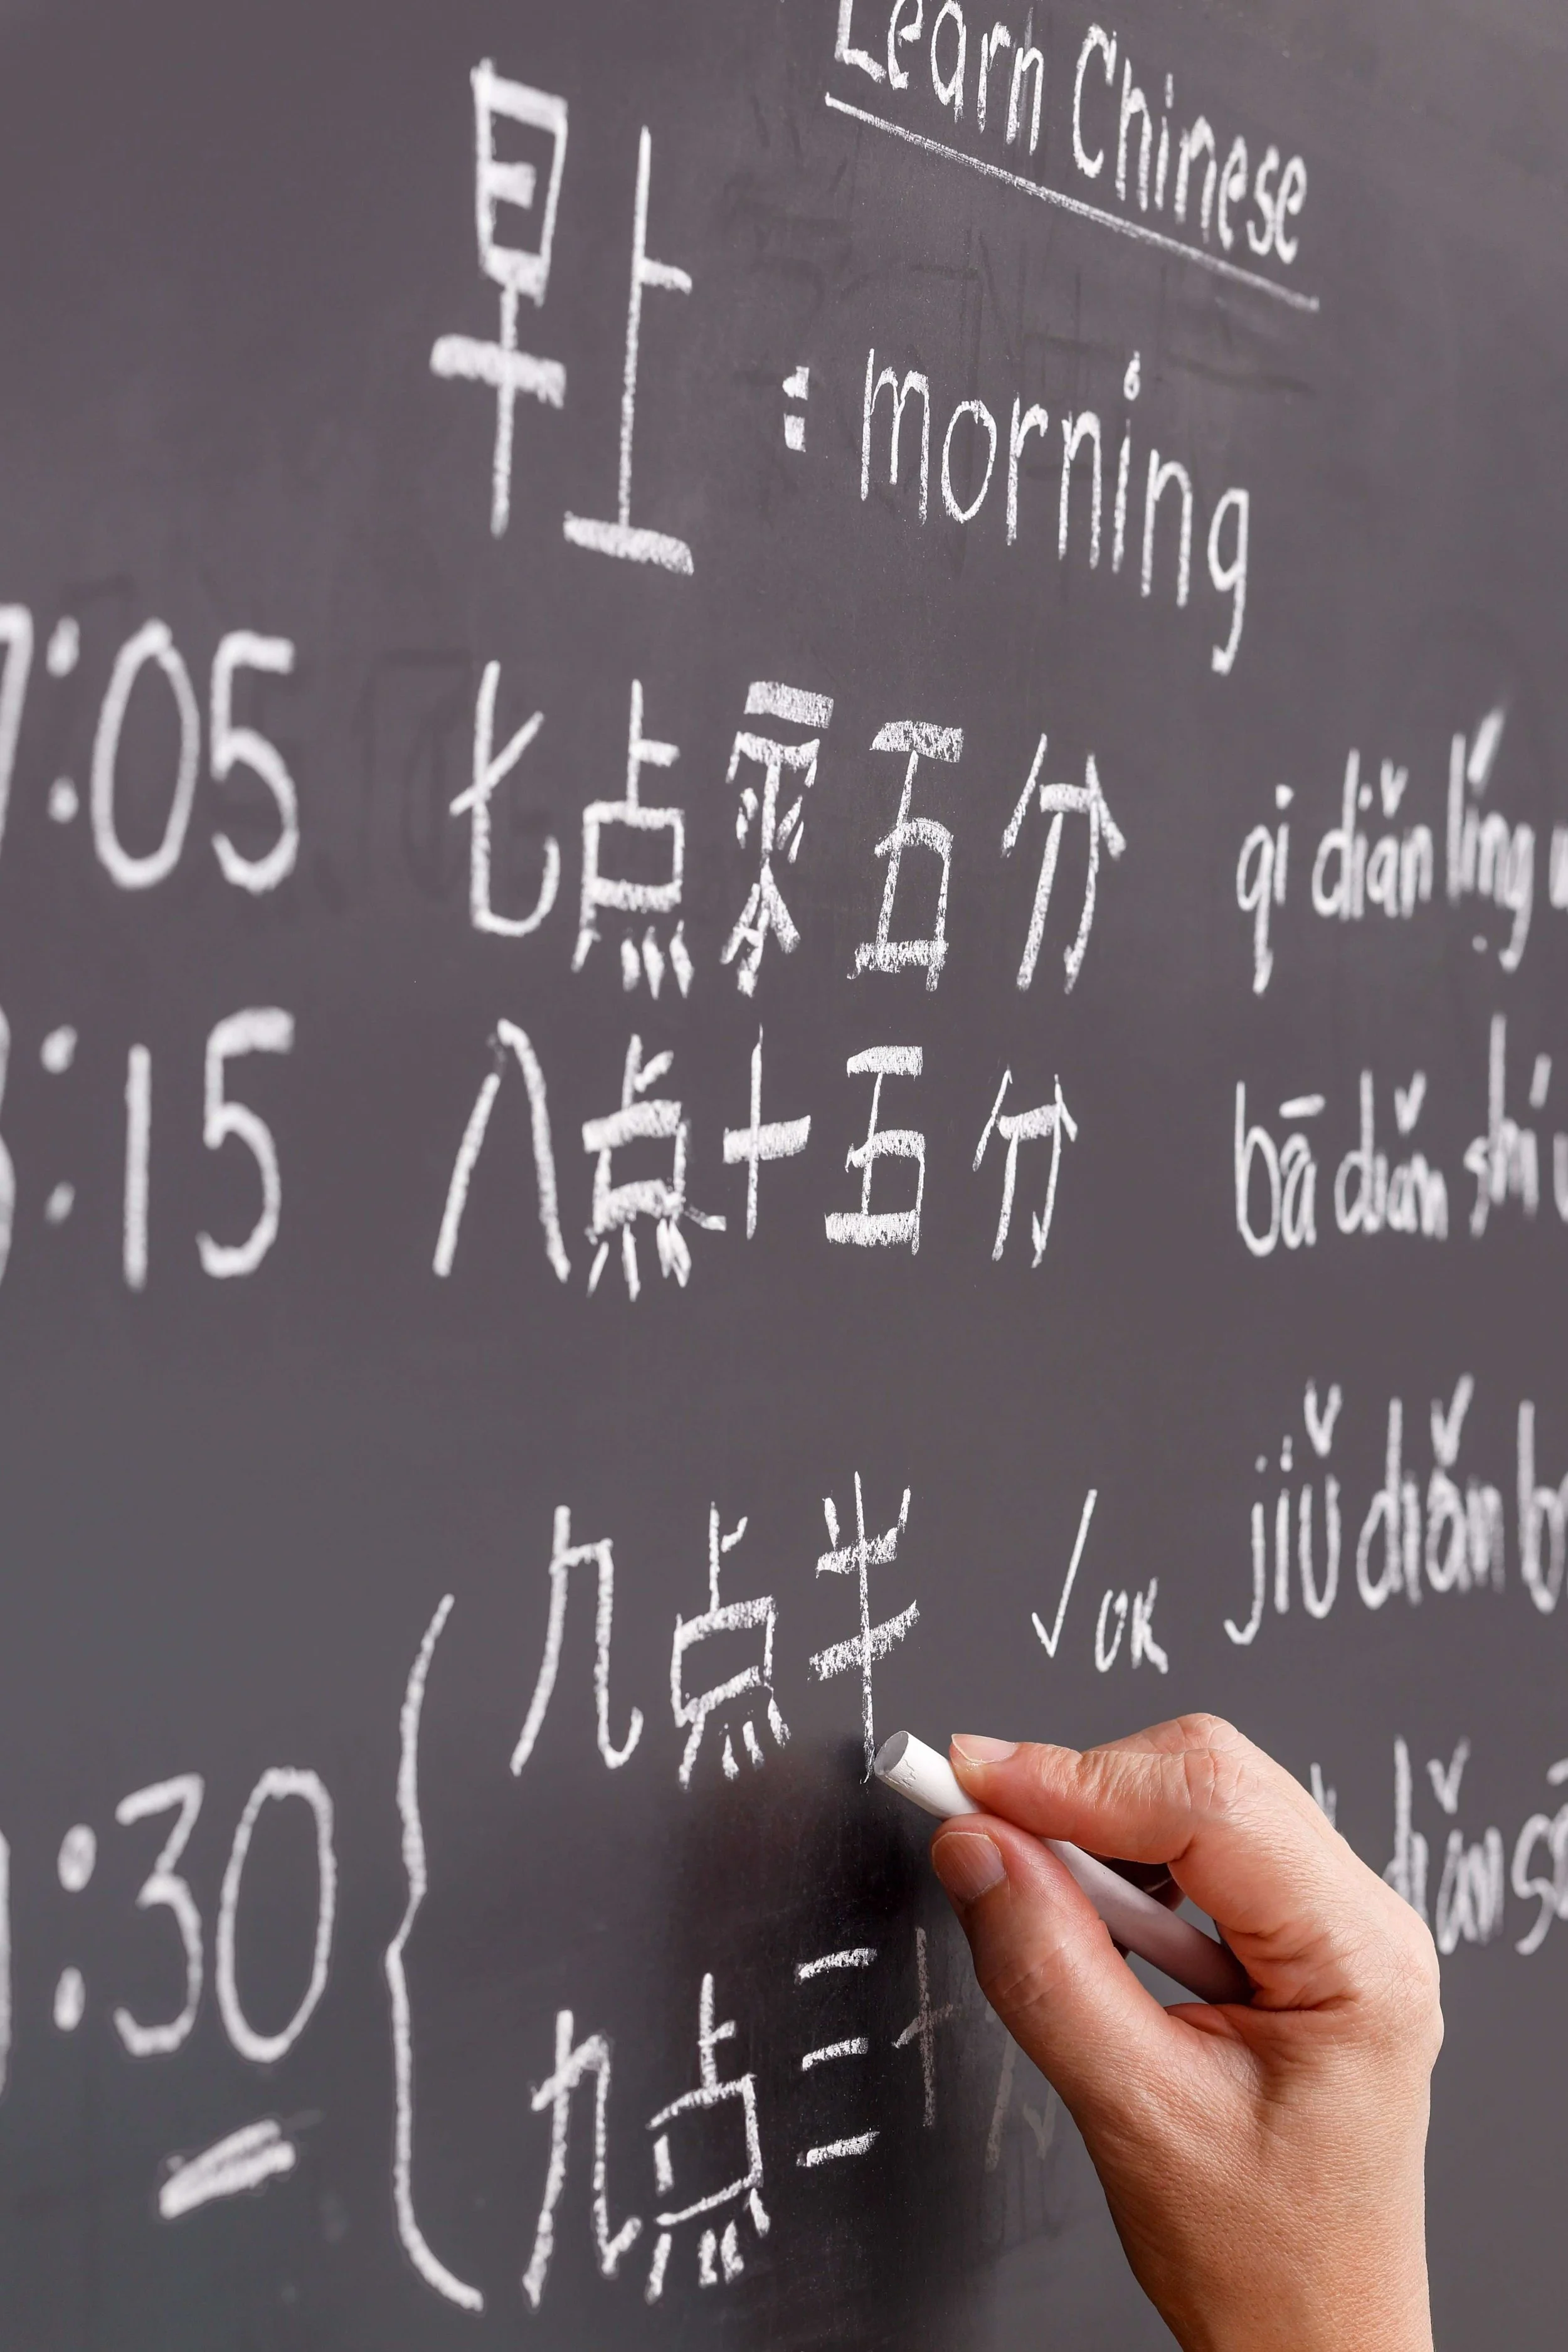 Learn Chinese
早上 : morning
7:05 七点零五分 qi diǎn líng
:15 八点十五分 bā diǎn shí
九点半 √ OK jiǔ diǎn b
:30
九点三十 diǎn s